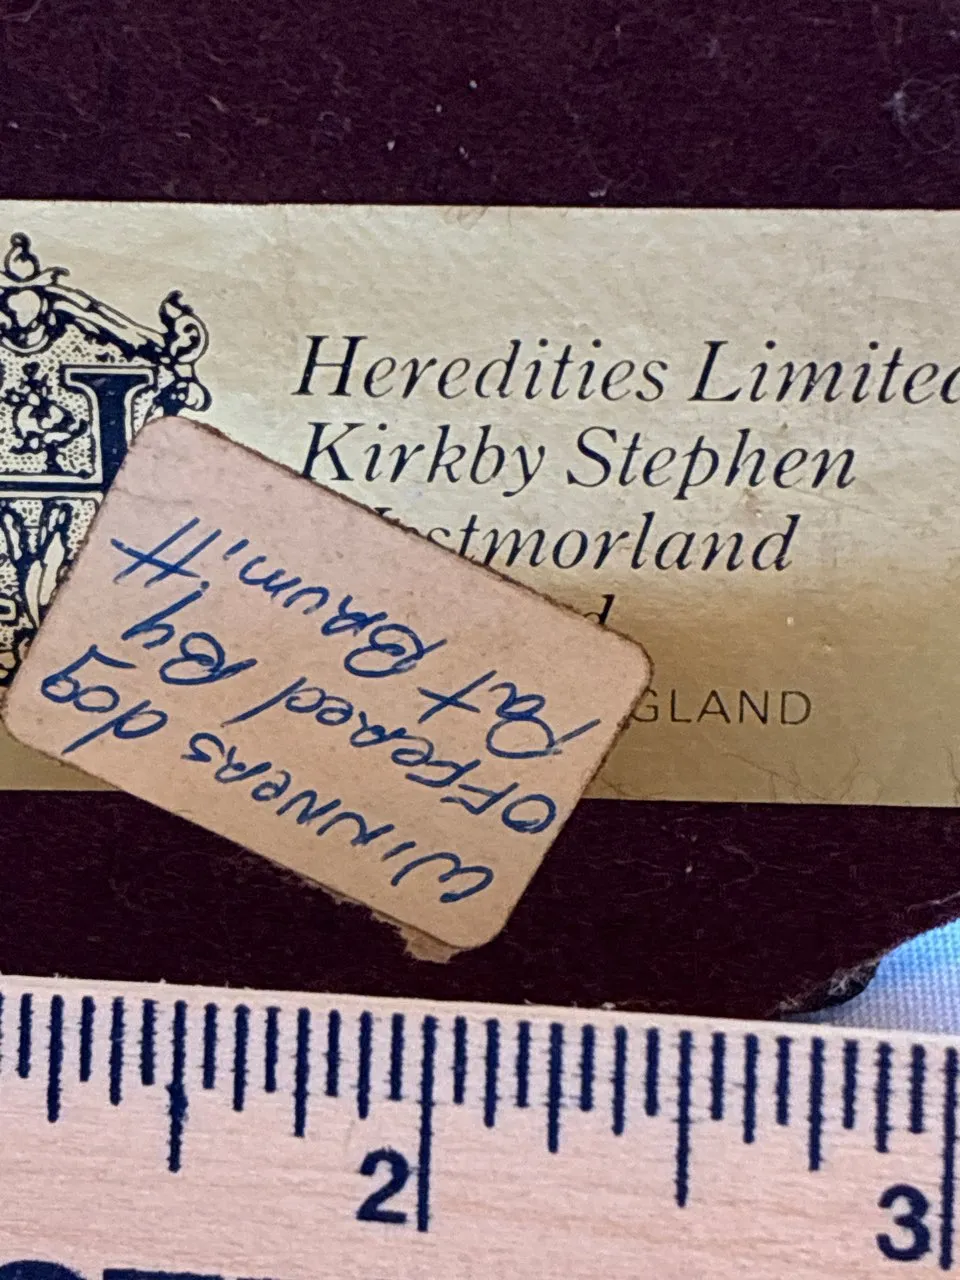 Heredities Limited
Kirkby Stephen
stmorland
d
GLAND
WINNERS dog
OFFERED By
Pat BRUMitt
2
3